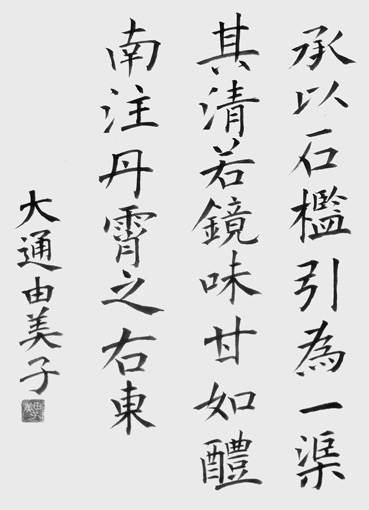 承以石檻引為一渠
其清若鏡味甘如醴
南注丹霄之右東
大通由美子